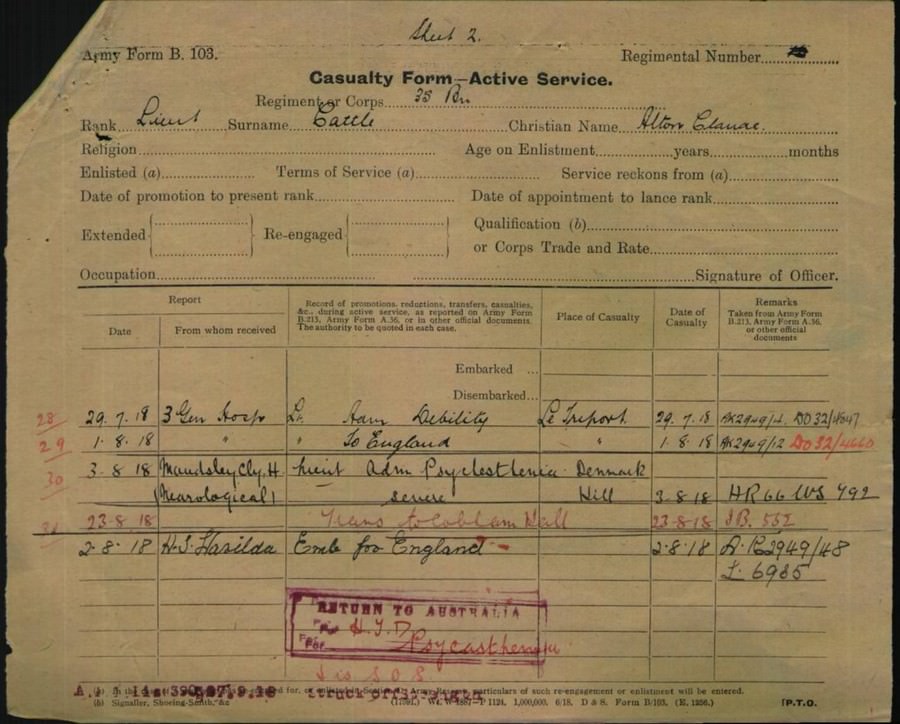 Sheet 2.
Army Form B. 103. Regimental Number
Casualty Form—Active Service.
Regiment or Corps 35 Bn
Rank Lieut Surname Cattle Christian Name Alton Claude.
Religion Age on Enlistment years months
Enlisted (a) Terms of Service (a) Service reckons from (a)
Date of promotion to present rank Date of appointment to lance rank
Extended Re-engaged Qualification (b)
or Corps Trade and Rate
Occupation Signature of Officer.
Report Record of promotions, reductions, transfers, casualties, &c., during active service, as reported on Army Form B.213, Army Form A.36, or in other official documents. The authority to be quoted in each case. Place of Casualty Date of Casualty Remarks Taken from Army Form B.213, Army Form A.36, or other official documents
Date From whom received
Embarked ...
Disembarked...
28 29.7.18 3 Gen Hosp Lt. Adm Debility Le Treport. 29.7.18 AK2949/12 DO32/4547
29 1.8.18 " " To England " 1.8.18 AK2949/12 DO32/4660
30 3.8.18 Maudsley Cly. H. Lieut adm Psyclesthenia Denmark
(Neurological) severe Hill 3.8.18 HR66 WS 792
31 23-8-18 Trans to Cobham Hall 23-8-18 IB. 552
2.8.18 H.S. Warilda Emb for England 2.8.18 A.R2949/48
L. 6985
RETURN TO AUSTRALIA
Per H.T.D
For Psycasthenia
(a) particulars of such re-engagement or enlistment will be entered.
(b) Signaller, Shoeing-Smith, &c 1,000,000. 6/18. D & S. Form B/103. (E. 1256.) [P.T.O.